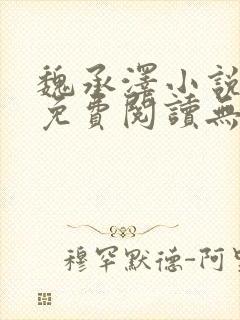 魏承澤小說
免費閱讀無
穆罕默德-阿